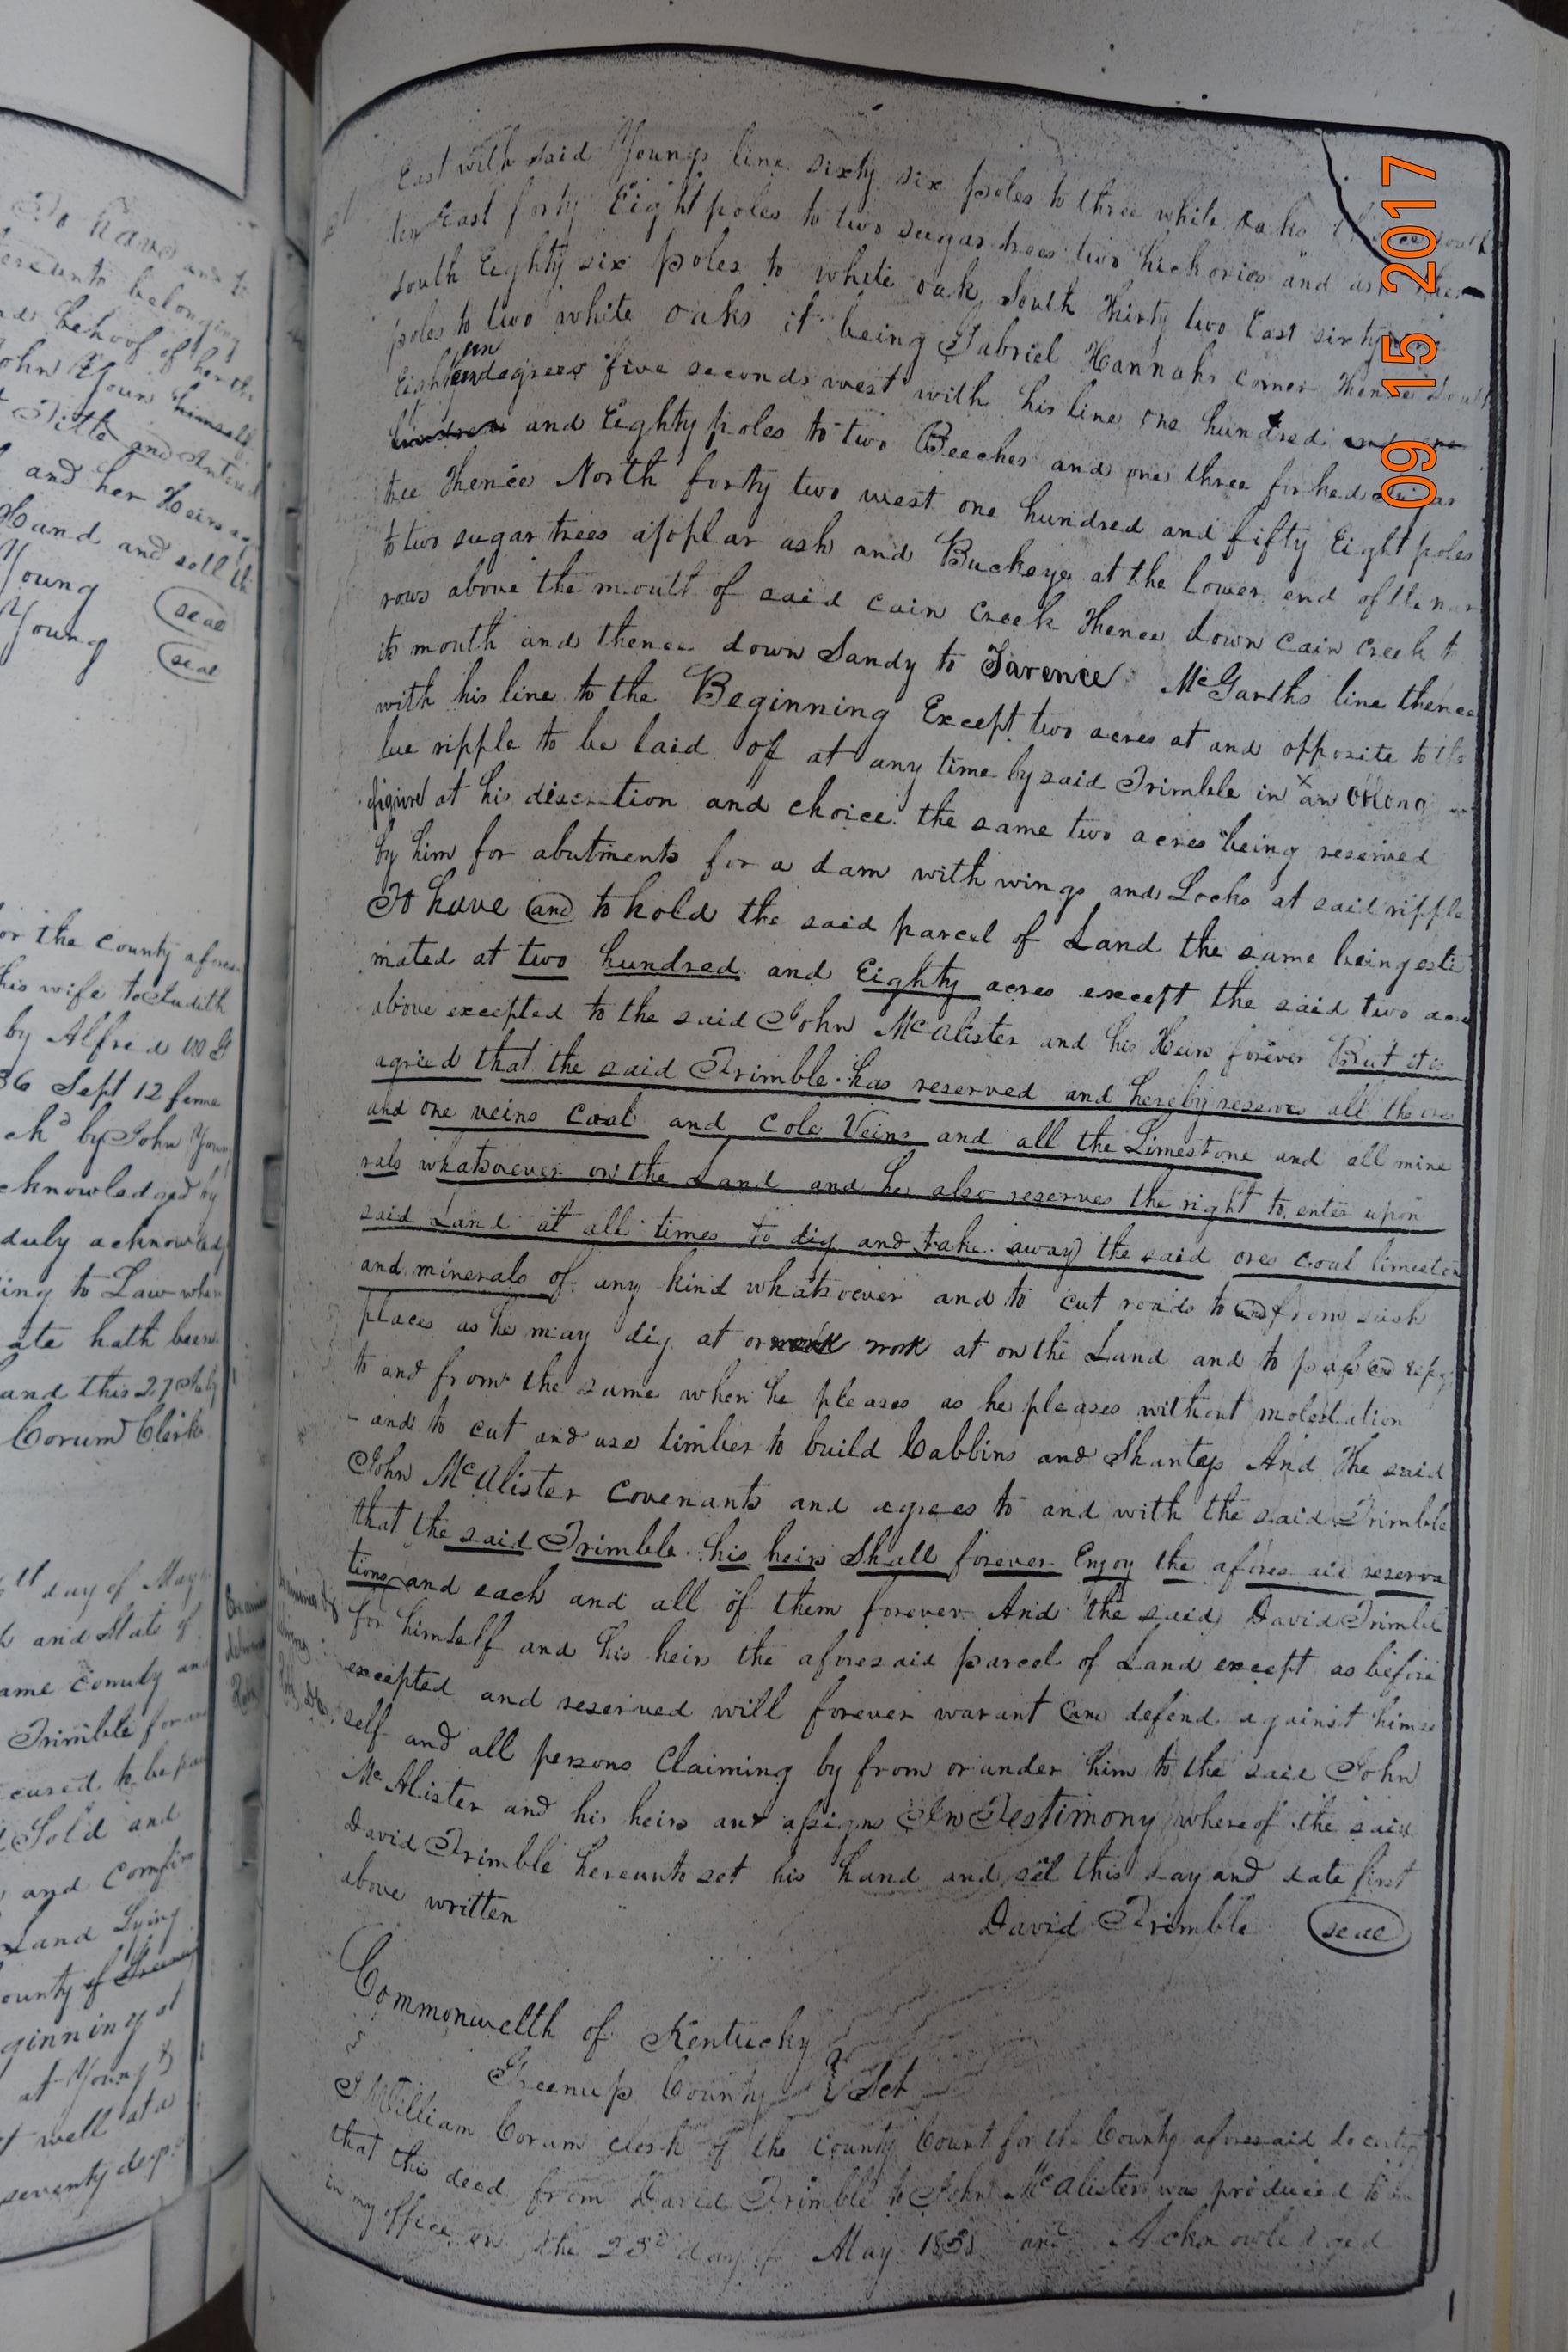 To have and to
hereunto belonging
behoof of her the
John Young himself
Title and
and her Heirs
Hand and sell th
Young seal
Young seal
or the County afores
his wife to Judith
by Alfred
36 Sept 12 feme
by John Youn
cknowledged by
duly acknowledg
ing to Law when
ate hath been
and this 27th July
Corum Clerk
day of May
and State of
ame County an
Trimble for
cured to be pai
Sold and
and confirm
Land Lying
ounty of Greenup
ginning at
at Young's
well at a
seventy deg
East with said Youngs line sixty six poles to three white oaks thence south
ten East forty Eight poles to two sugar trees two hickories and ash thence
south Eighty six poles to white oak, South Thirty two East sixty
poles to two white oaks it being Gabriel Hannahs corner Thence South
Eighteen degrees five seconds west with his line one hundred and one
hundred and Eighty poles to two Beeches and one three forked
tree Thence North forty two west one hundred and fifty Eight poles
to two sugar trees a poplar ash and Buckeye at the lower end of the nar
rows above the mouth of said cain creek Thence down cain creek t
its mouth and thence down Sandy to Tarence McGarths line thence
with his line to the Beginning Except two acres at and opposite to the
ripple to be laid of at any time by said Trimble in an oblong
figure at his discretion and choice the same two acres being reserved
by him for abutments for a dam with wings and Locks at said ripple
To have and to hold the said parcel of Land the same being esti
mated at two hundred and Eighty acres except the said two acres
above excepted to the said John McAlister and his Heirs forever But it is
agried that the said Trimble has reserved and hereby reserves all the ores
and one veins Coal and Cole Veins and all the Limestone and all mine
rals whatsoever on the Land and he also reserves the right to enter upon
said Land at all times to dig and take away the said ores coal limeston
and minerals of any kind whatsoever and to cut roads to and from such
places as he may dig at or work work at on the Land and to pass and repass
to and from the same when he pleases as he pleases without molestation
- and to cut and use timber to build Cabbins and Shantys And The said
John McAlister covenants and agrees to and with the said Trimble
that the said Trimble his heirs Shall forever Enjoy the aforesaid reserva
tions and each and all of them forever And the said David Trimble
for himself and his heirs the aforesaid parcel of Land except as before
excepted and reserved will forever warant and defend against himse
self and all persons Claiming by from or under him to the said John
McAlister and his heirs and assigns In Testimony whereof the said
David Trimble hereunto set his hand and sel this day and date first
above written
David Trimble seal
Commonwelth of Kentucky
Greenup County Sct
I William Corum clerk of the County Court for the County aforesaid do certify
that this deed from David Trimble to John McAlister was produced to me
in my office on the 23d day of May 1838 and Acknowledged
09 15 2017